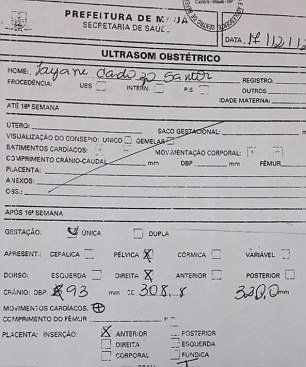 PREFEITURA DE MAUÁ
SECRETARIA DE SAÚDE
DATA 17/12/12
ULTRASOM OBSTÉTRICO
NOME: Santos
REGISTRO
PROCEDÊNCIA: UBS INTERN. P.S. OUTROS
IDADE MATERNA:
ATÉ 16ª SEMANA
ÚTERO:
SACO GESTACIONAL:
VISUALIZAÇÃO DO CONSEPIO: UNICO GEMELAR
BATIMENTOS CARDÍACOS: MOVIMENTAÇÃO CORPORAL:
COMPRIMENTO CRÂNIO-CAUDAL mm DBP mm FÊMUR
PLACENTA:
ANEXOS:
OBS.:
APÓS 16ª SEMANA
GESTAÇÃO: ÚNICA DUPLA
APRESENT.: CEFÁLICA PÉLVICA X CÓRMICA VARIÁVEL
DORSO: ESQUERDA DIREITA X ANTERIOR POSTERIOR
CRÂNIO: DBP 93 mm CC 308,8 320,0 mm
MOVIMENTOS CARDÍACOS
COMPRIMENTO DO FÊMUR
PLACENTA: INSERÇÃO: X ANTERIOR POSTERIOR
DIREITA ESQUERDA
CORPORAL FUNDICA